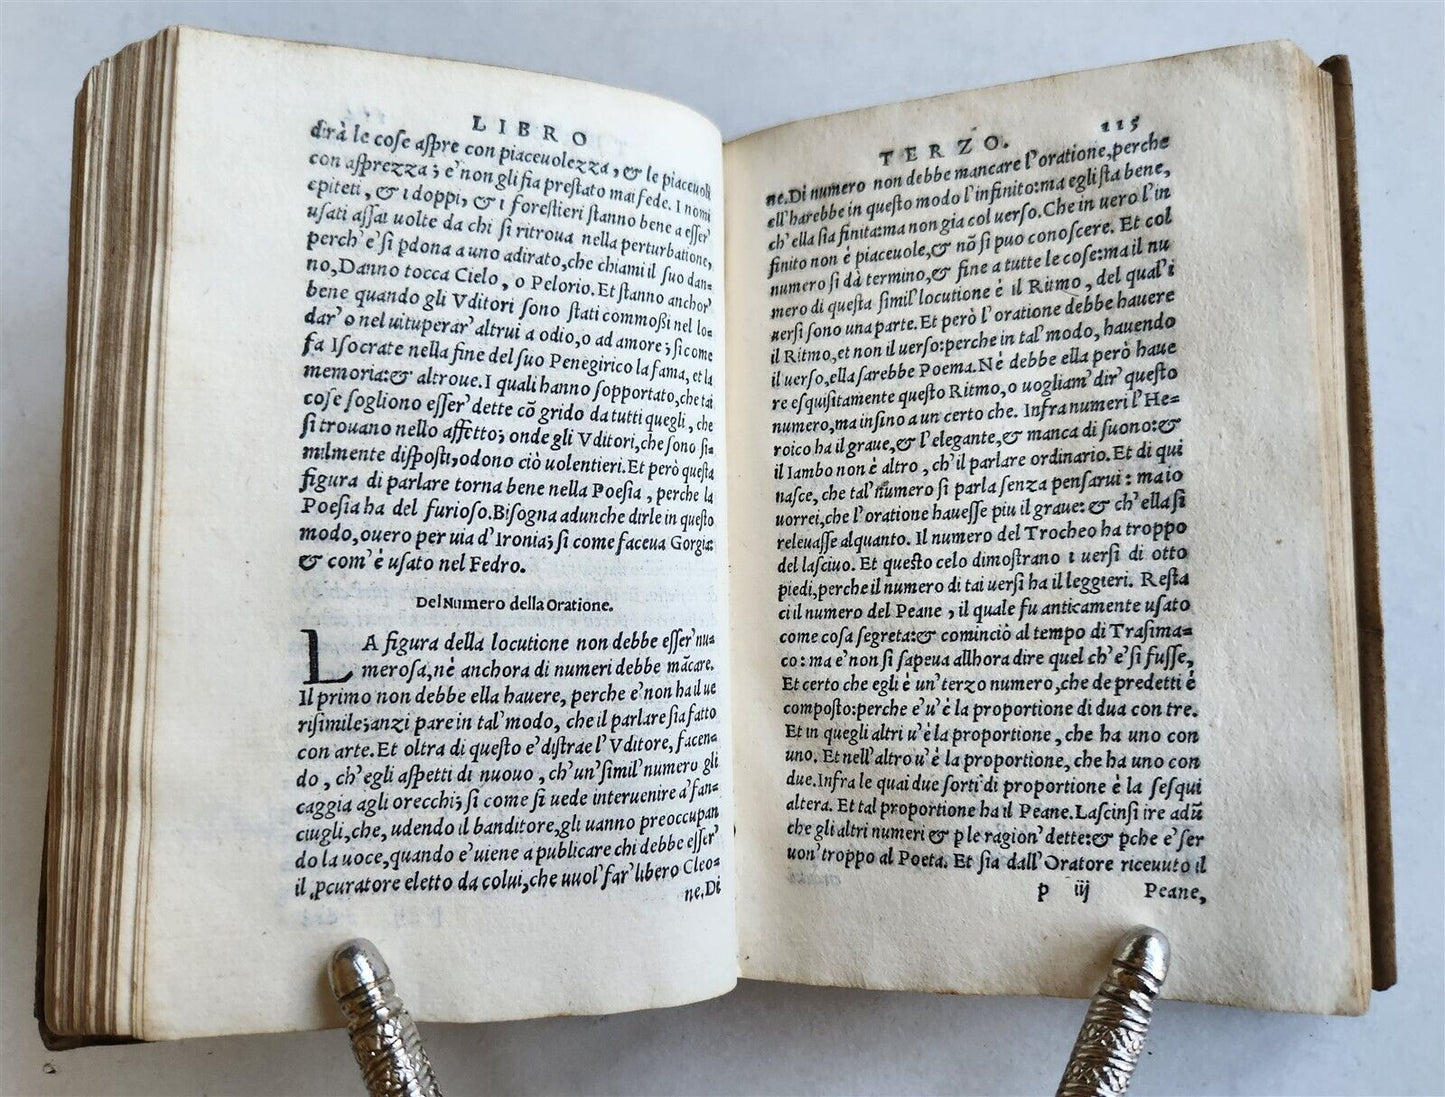 LIBRO
dirà le cose aspre con piaceuolezza, & le piaceuoli
con asprezza; e' non gli fia prestato mai fede. I nomi
epiteti, & i doppi, & i forestieri stanno bene a esser'
usati assai uolte da chi si ritroua nella perturbatione,
perch' e' si pdona a uno adirato, che chiami il suo dan-
no, Danno tocca Cielo, o Pelorio. Et stanno anchor'
bene quando gli Vditori sono stati commoßi nel lo-
dar' o nel uituperar' altrui a odio, o ad amore; si come
fa Isocrate nella fine del suo Penegirico la fama, et la
memoria: & altroue. I quali hanno sopportato, che tai
cose sogliono esser' dette cõ grido da tutti quegli, che
si trouano nello affetto; onde gli Vditori, che sono si-
milmente disposti, odono ciò uolentieri. Et però questa
figura di parlare torna bene nella Poesia, perche la
Poesia ha del furioso. Bisogna adunche dirle in questo
modo, ouero per uia d'Ironia; si come faceua Gorgia:
& com' è usato nel Fedro.
Del Numero della Oratione.
LA figura della locutione non debbe esser' nu-
merosa, nè anchora di numeri debbe mãcare.
Il primo non debbe ella hauere, perche e' non ha il ue
risimile; anzi pare in tal' modo, che il parlare sia fatto
con arte. Et oltra di questo e' distrae l'Vditore, facen-
do, ch' egli aspetti di nuouo, ch' un' simil' numero gli
caggia agli orecchi; si come si uede interuenire a' fan-
ciugli, che, udendo il banditore, gli uanno preoccupan
do la uoce, quando e' uiene a publicare chi debbe esser'
il pcuratore eletto da colui, che uuol' far' libero Cleo-
ne. Di
TERZO. 115
ne. Di numero non debbe mancare l'oratione, perche
ell' harebbe in questo modo l'infinito: ma egli sta bene,
ch' ella sia finita: ma non gia col uerso. Che in uero l'in
finito non è piaceuole, & nõ si puo conoscere. Et col
numero si dà termino, & fine a tutte le cose: ma il nu
mero di questa simil' locutione è il Ritmo, del qual' i
uersi sono una parte. Et però l'oratione debbe hauere
il Ritmo, et non il uerso: perche in tal' modo, hauendo
il uerso, ella sarebbe Poema. Nè debbe ella però haue
re esquisitamente questo Ritmo, o uogliam' dir' questo
numero, ma insino a un certo che. Infra numeri l'He-
roico ha il graue, & l'elegante, & manca di suono: &
il Iambo non è altro, ch' il parlare ordinario. Et di qui
nasce, che tal' numero si parla senza pensarui: ma io
uorrei, che l'oratione hauesse piu il graue: & ch' ella si
releuasse alquanto. Il numero del Trocheo ha troppo
del lasciuo. Et questo celo dimostrano i uersi di otto
piedi, perche il numero di tai uersi ha il leggieri. Resta
ci il numero del Peane, il quale fu anticamente usato
come cosa segreta: & cominciò al tempo di Trasima-
co: ma e' non si sapeua allhora dire quel ch' e' si fusse,
Et certo che egli è un' terzo numero, che de predetti è
composto: perche e' u' è la proportione di dua con tre.
Et in quegli altri u' è la proportione, che ha uno con
uno. Et nell' altro u' è la proportione, che ha uno con
due. Infra le quai due sorti di proportione è la sesqui
altera. Et tal proportione ha il Peane. Lascinsi ire adũ
che gli altri numeri & p le ragion' dette: & pche e' ser
uon' troppo al Poeta. Et sia dall' Oratore riceuuto il
p iij Peane,